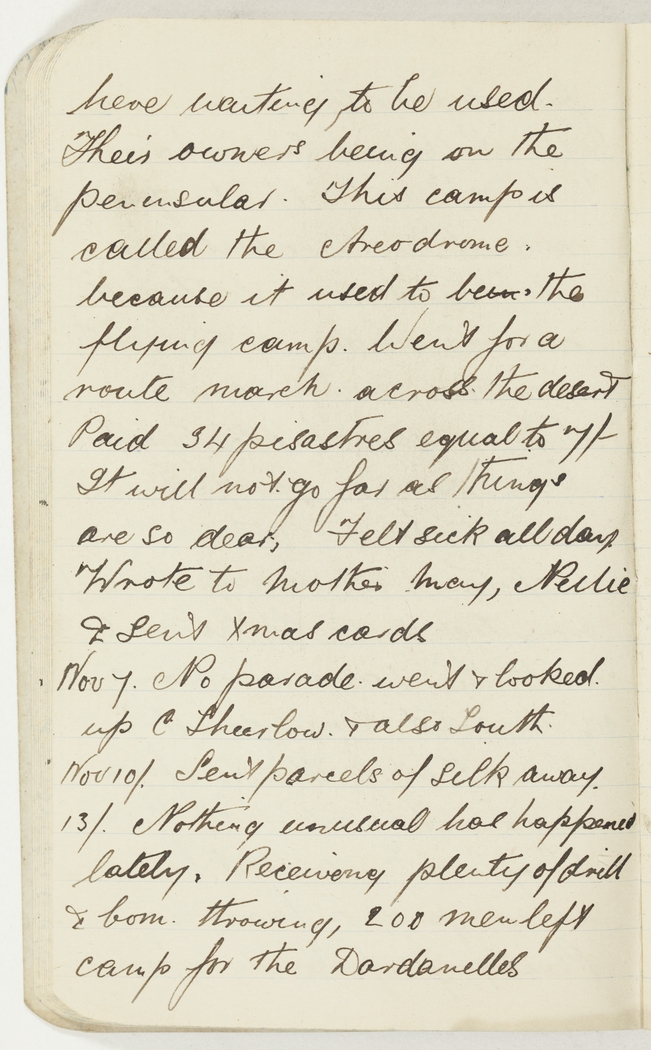 here waiting to be used.
Their owners being on the
penensular. This camp is
called the Areodrome.
because it used to be the
flying camp. Went for a
route march. across the desert
Paid 34 pisastres equal to 7/-
It will not go far as things
are so dear, Felt sick all day
Wrote to Mother May, Nellie
& Sent Xmas cards
Nov 7. No parade. went & looked
up C Shearlow. & also Louth.
Nov 10/. Sent parcels of silk away.
13/. Nothing unusual has happened
lately. Receiveng plenty of drill
& bom. throwing, 200 men left
camp for the Dardanelles